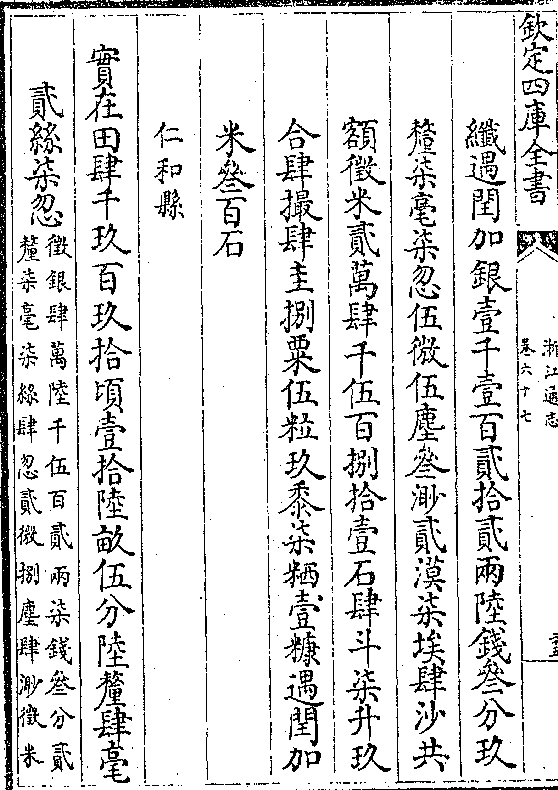 欽定四庫全書
浙江通志
卷六十七
纖遇閏加銀壹千壹百貳拾貳兩陸錢叄分玖
釐柒毫柒忽伍微伍塵叄渺貳漠柒埃肆沙共
額徵米貳萬肆千伍百捌拾壹石肆斗柒升玖
合肆撮肆圭捌粟伍粒玖黍柒粞壹糠遇閏加
米叄百石
仁和縣
實在田肆千玖百玖拾頃壹拾陸畝伍分陸釐肆毫
貳絲柒忽
徵銀肆萬陸千伍百貳兩柒錢叄分貳
釐柒毫柒絲肆忽貳微捌塵肆渺徵米